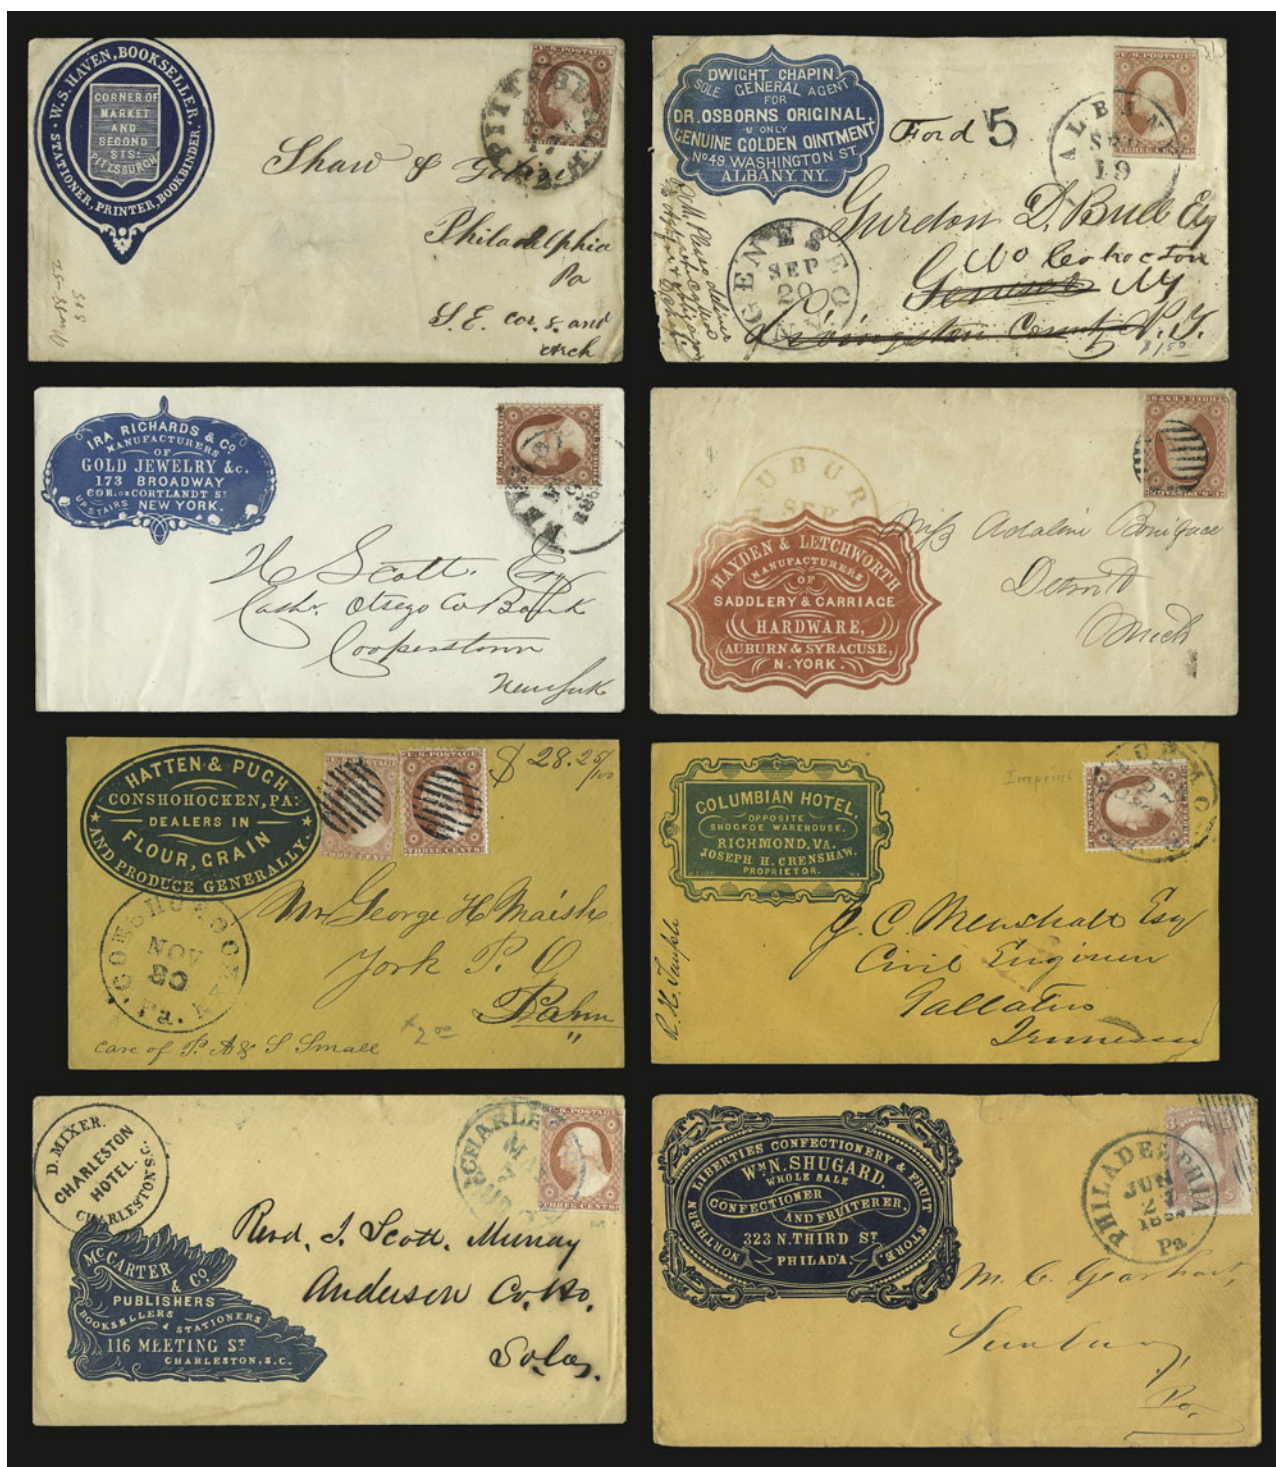 W.S. HAVEN, BOOKSELLER,
STATIONER, PRINTER, BOOKBINDER.
CORNER OF
MARKET
AND
SECOND
STS:
PITTSBURGH
U.S. POSTAGE
Shaw &
Philadelphia
Pa
S. E. cor. 8. and
Arch
DWIGHT CHAPIN.
SOLE GENERAL AGENT
FOR
DR. OSBORNS ORIGINAL,
& ONLY
GENUINE GOLDEN OINTMENT
No 49 WASHINGTON ST.
ALBANY. N.Y.
Ford 5
U.S. POSTAGE
THREE CENTS
ALBANY
SEP
19
GENESEO
SEP
20
Gurdon D. Bull Esq
Wo Cohocton
Geneseo NY
Livingston County N.Y.
$1.50
IRA RICHARDS & Co
MANUFACTURERS
OF
GOLD JEWELRY &c.
173 BROADWAY
COR. OF CORTLANDT ST
UPSTAIRS NEW YORK.
H Scott. Esq
Cashr. Otsego Co Bank
Cooperstown
New York
AUBUR
SEP
HAYDEN & LETCHWORTH
MANUFACTURERS
OF
SADDLERY & CARRIAGE
HARDWARE,
AUBURN & SYRACUSE,
N. YORK.
Miss Adaline Boniface
Detroit
Mich
HATTEN & PUGH
CONSHOHOCKEN, PA:
DEALERS IN
FLOUR, GRAIN
AND PRODUCE GENERALLY.
U.S. POSTAGE
THREE CENTS
$28.25/100
CONSHOHOCKEN
NOV
Pa.
Mr George H Maish
York P. O
Penn
"
$2.00
care of P. A & S Small
COLUMBIAN HOTEL,
OPPOSITE
SHOCKOE WAREHOUSE.
RICHMOND, VA.
JOSEPH H. CRENSHAW.
PROPRIETOR.
Imprint
J. C. Wrenshall Esq
Civil Engineer
Gallatin
Tennessee
R. H. Temple
D. MIXER.
CHARLESTON
HOTEL.
CHARLESTON S.C.
McCARTER
& Co
PUBLISHERS
BOOKSELLERS
& STATIONERS
116 MEETING ST
CHARLESTON, S.C.
U.S. POSTAGE
THREE CENTS
Revd. J. Scott. Murray
Anderson Co. Ho.
So. Ca.
NORTHERN LIBERTIES CONFECTIONERY & FRUIT STORE.
Wm N. SHUGARD,
WHOLE SALE
CONFECTIONER
AND FRUITERER,
323 N. THIRD ST
PHILAD'A.
PHILADELPHIA
JUN
27
Pa
M. C. Gearhart,
Sunbury
Pa,